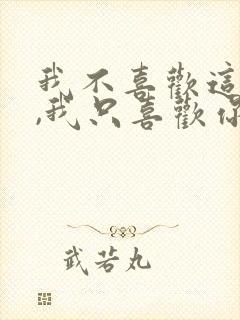 我不喜歡這
,我只喜歡你
武若丸